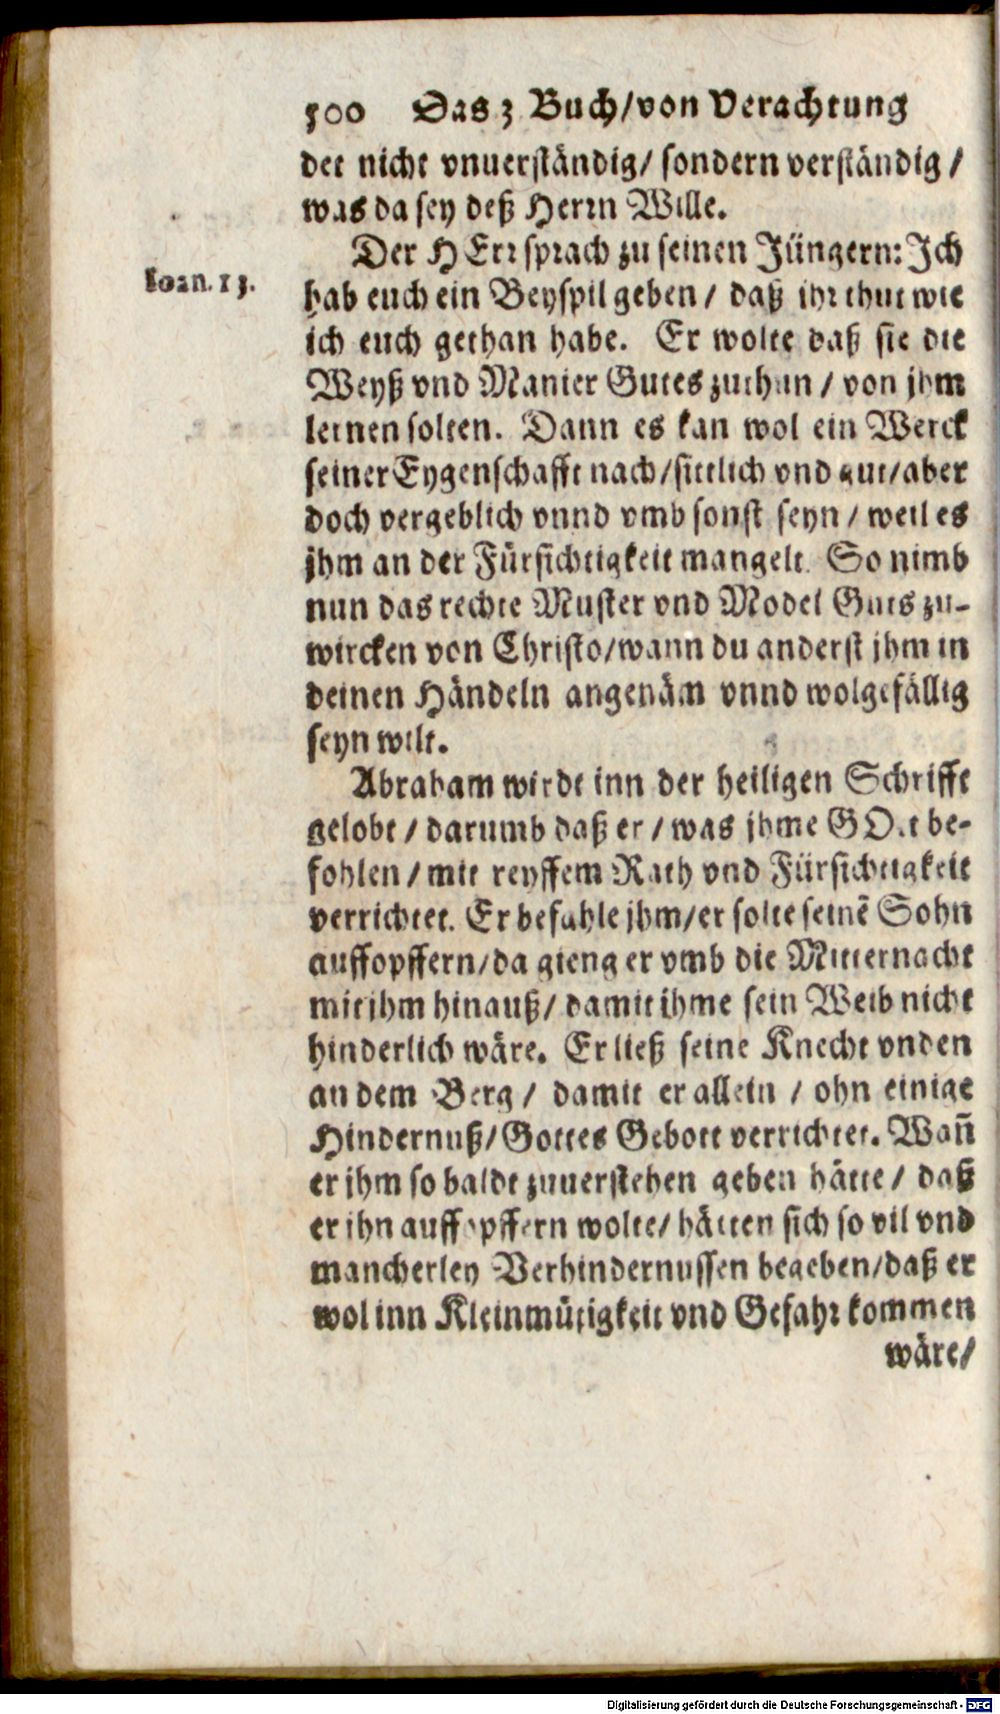 500 Das 3 Buch/von Verachtung
det nicht vnuerständig/ sondern verständig/
was da sey deß Herrn Wille.
Der HErr sprach zu seinen Jüngern: Ich
Ioan. 13.
hab euch ein Beyspil geben / daß ihr thut wie
ich euch gethan habe. Er wolte daß sie die
Weyß vnd Manier Gutes zuthun / von jhm
lernen solten. Dann es kan wol ein Werck
seiner Eygenschafft nach/sittlich vnd gut/aber
doch vergeblich vnnd vmb sonst seyn / weil es
jhm an der Fürsichtigkeit mangelt. So nimb
nun das rechte Muster vnd Model Guts zu-
wircken von Christo/wann du anderst jhm in
deinen Händeln angenäm vnnd wolgefällig
seyn wilt.
Abraham wirdt inn der heiligen Schrifft
gelobt / darumb daß er / was jhme GOtt be-
fohlen / mit reyffem Rath vnd Fürsichtigkeit
verrichtet. Er befahle jhm/er solte seinẽ Sohn
auffopffern/da gieng er vmb die Mitternacht
mit jhm hinauß/ damit ihme sein Weib nicht
hinderlich wäre. Er ließ seine Knecht vnden
an dem Berg / damit er allein / ohn einige
Hindernuß/Gottes Gebott verrichtet. Wañ
er jhm so baldt zuuerstehen geben hätte / daß
er ihn auffopffern wolte/ hätten sich so vil vnd
mancherley Verhindernussen begeben/daß er
wol inn Kleinmütigkeit vnd Gefahr kommen
wäre/
Digitalisierung gefördert durch die Deutsche Forschungsgemeinschaft - DFG